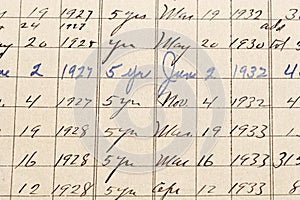 19 1927 5 yrs Mar 19 1932 3
24 1927 add
20 1925 yr May 20 1930
2 1927 5 yr June 2 1932 4
4 1927 5 yr Nov 4 1932 4
19 1928 5 yr Mar 19 1933 1
16 1928 5 yr Mar 16 1933 315
12 1928 5 yr Apr 12 1933 8